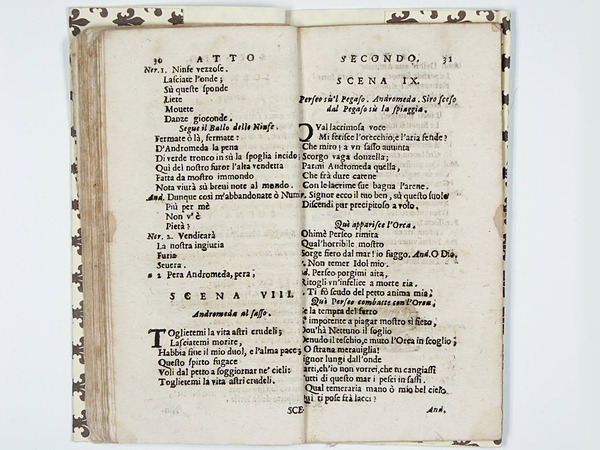 30 ATTO
Ner. 1. Ninfe vezzose.
Lasciate l'onde;
Sù queste sponde
Liete
Mouete
Danze gioconde.
Segue il Ballo delle Ninfe.
Fermate ò là, fermate:
D'Andromeda la pena
Di verde tronco in sù la spoglia incido
Qui del nostro furor l'alta vendetta
Fatta da mostro immondo
Nota viurà sù breui note al mondo.
And. Dunque così m'abbandonate ò Numi
Più per mè
Non v'è
Pietà?
Ner. 2. Vendicarà
La nostra ingiuria
Furia
Seuera.
a 2 Pera Andromeda, pera;
SCENA VIII.
Andromeda al sasso.
Toglietemi la vita astri crudeli;
Lasciatemi morire,
Habbia fine il mio duol, e l'alma pace;
Questo spirto fugace
Voli dal petto a soggiornar ne' cieli:
Toglietemi la vita astri crudeli.
SCE-
SECONDO. 31
SCENA IX.
Perseo sù'l Pegaso. Andromeda. Siro sceso
dal Pegaso sù la spiaggia.
Qual lacrimosa voce
Mi ferisce l'orecchio, e l'aria fende?
Che miro! a vn sasso auuinta
Scorgo vaga donzella;
Parmi Andromeda quella,
Che frà dure catene
Con le lacrime sue bagna l'arene.
Signor ecco il tuo ben, sù questo suolo
Discendi pur precipitoso a volo.
Quì apparisce l'Orca.
Ohimè Perseo rimira
Qual'horribile mostro
Sorge fiero dal mar! io fuggo. And. O Dio.
Non temer Idol mio.
Perseo porgimi aita,
Ritogli vn'infelice a morte ria.
Ti fò scudo del petto anima mia;
Quì Perseo combatte con l'Orca;
Se la tempra del ferro
E' impotente a piagar mostro sì fiero,
Dou'hà Nettuno il soglio
Denudo il teschio, e muto l'Orca in scoglio;
O strana merauiglia!
Signor lungi dall'onde
Parti, ch'io non vorrei, che tu cangiassi
Tutti di questo mar i pesci in sassi.
Qual temeraria mano ò mio bel cielo
Qui ti pose frà lacci?
And.